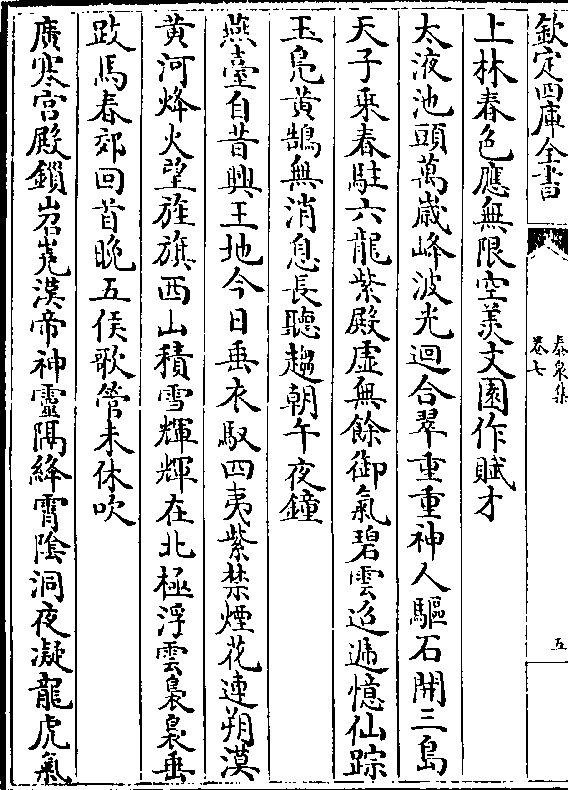 欽定四庫全書
泰泉集
卷七
五
上林春色應無限空羡文園作賦才
太液池頭萬嵗峰波光迴合翠重重神人驅石開三島
天子乘春駐六龍紫殿虛無餘御氣碧雲迢遞憶仙踪
玉鳬黄鵠無消息長聽趨朝午夜鐘
燕臺自昔興王地今日垂衣馭四夷紫禁煙花連朔漠
黄河烽火望旌旗西山積雪輝輝在北極浮雲裊裊垂
跋馬春郊回首晚五侯歌管未休吹
廣寒宫殿鎖岧嶤漢帝神靈隔絳霄陰洞夜凝龍虎氣